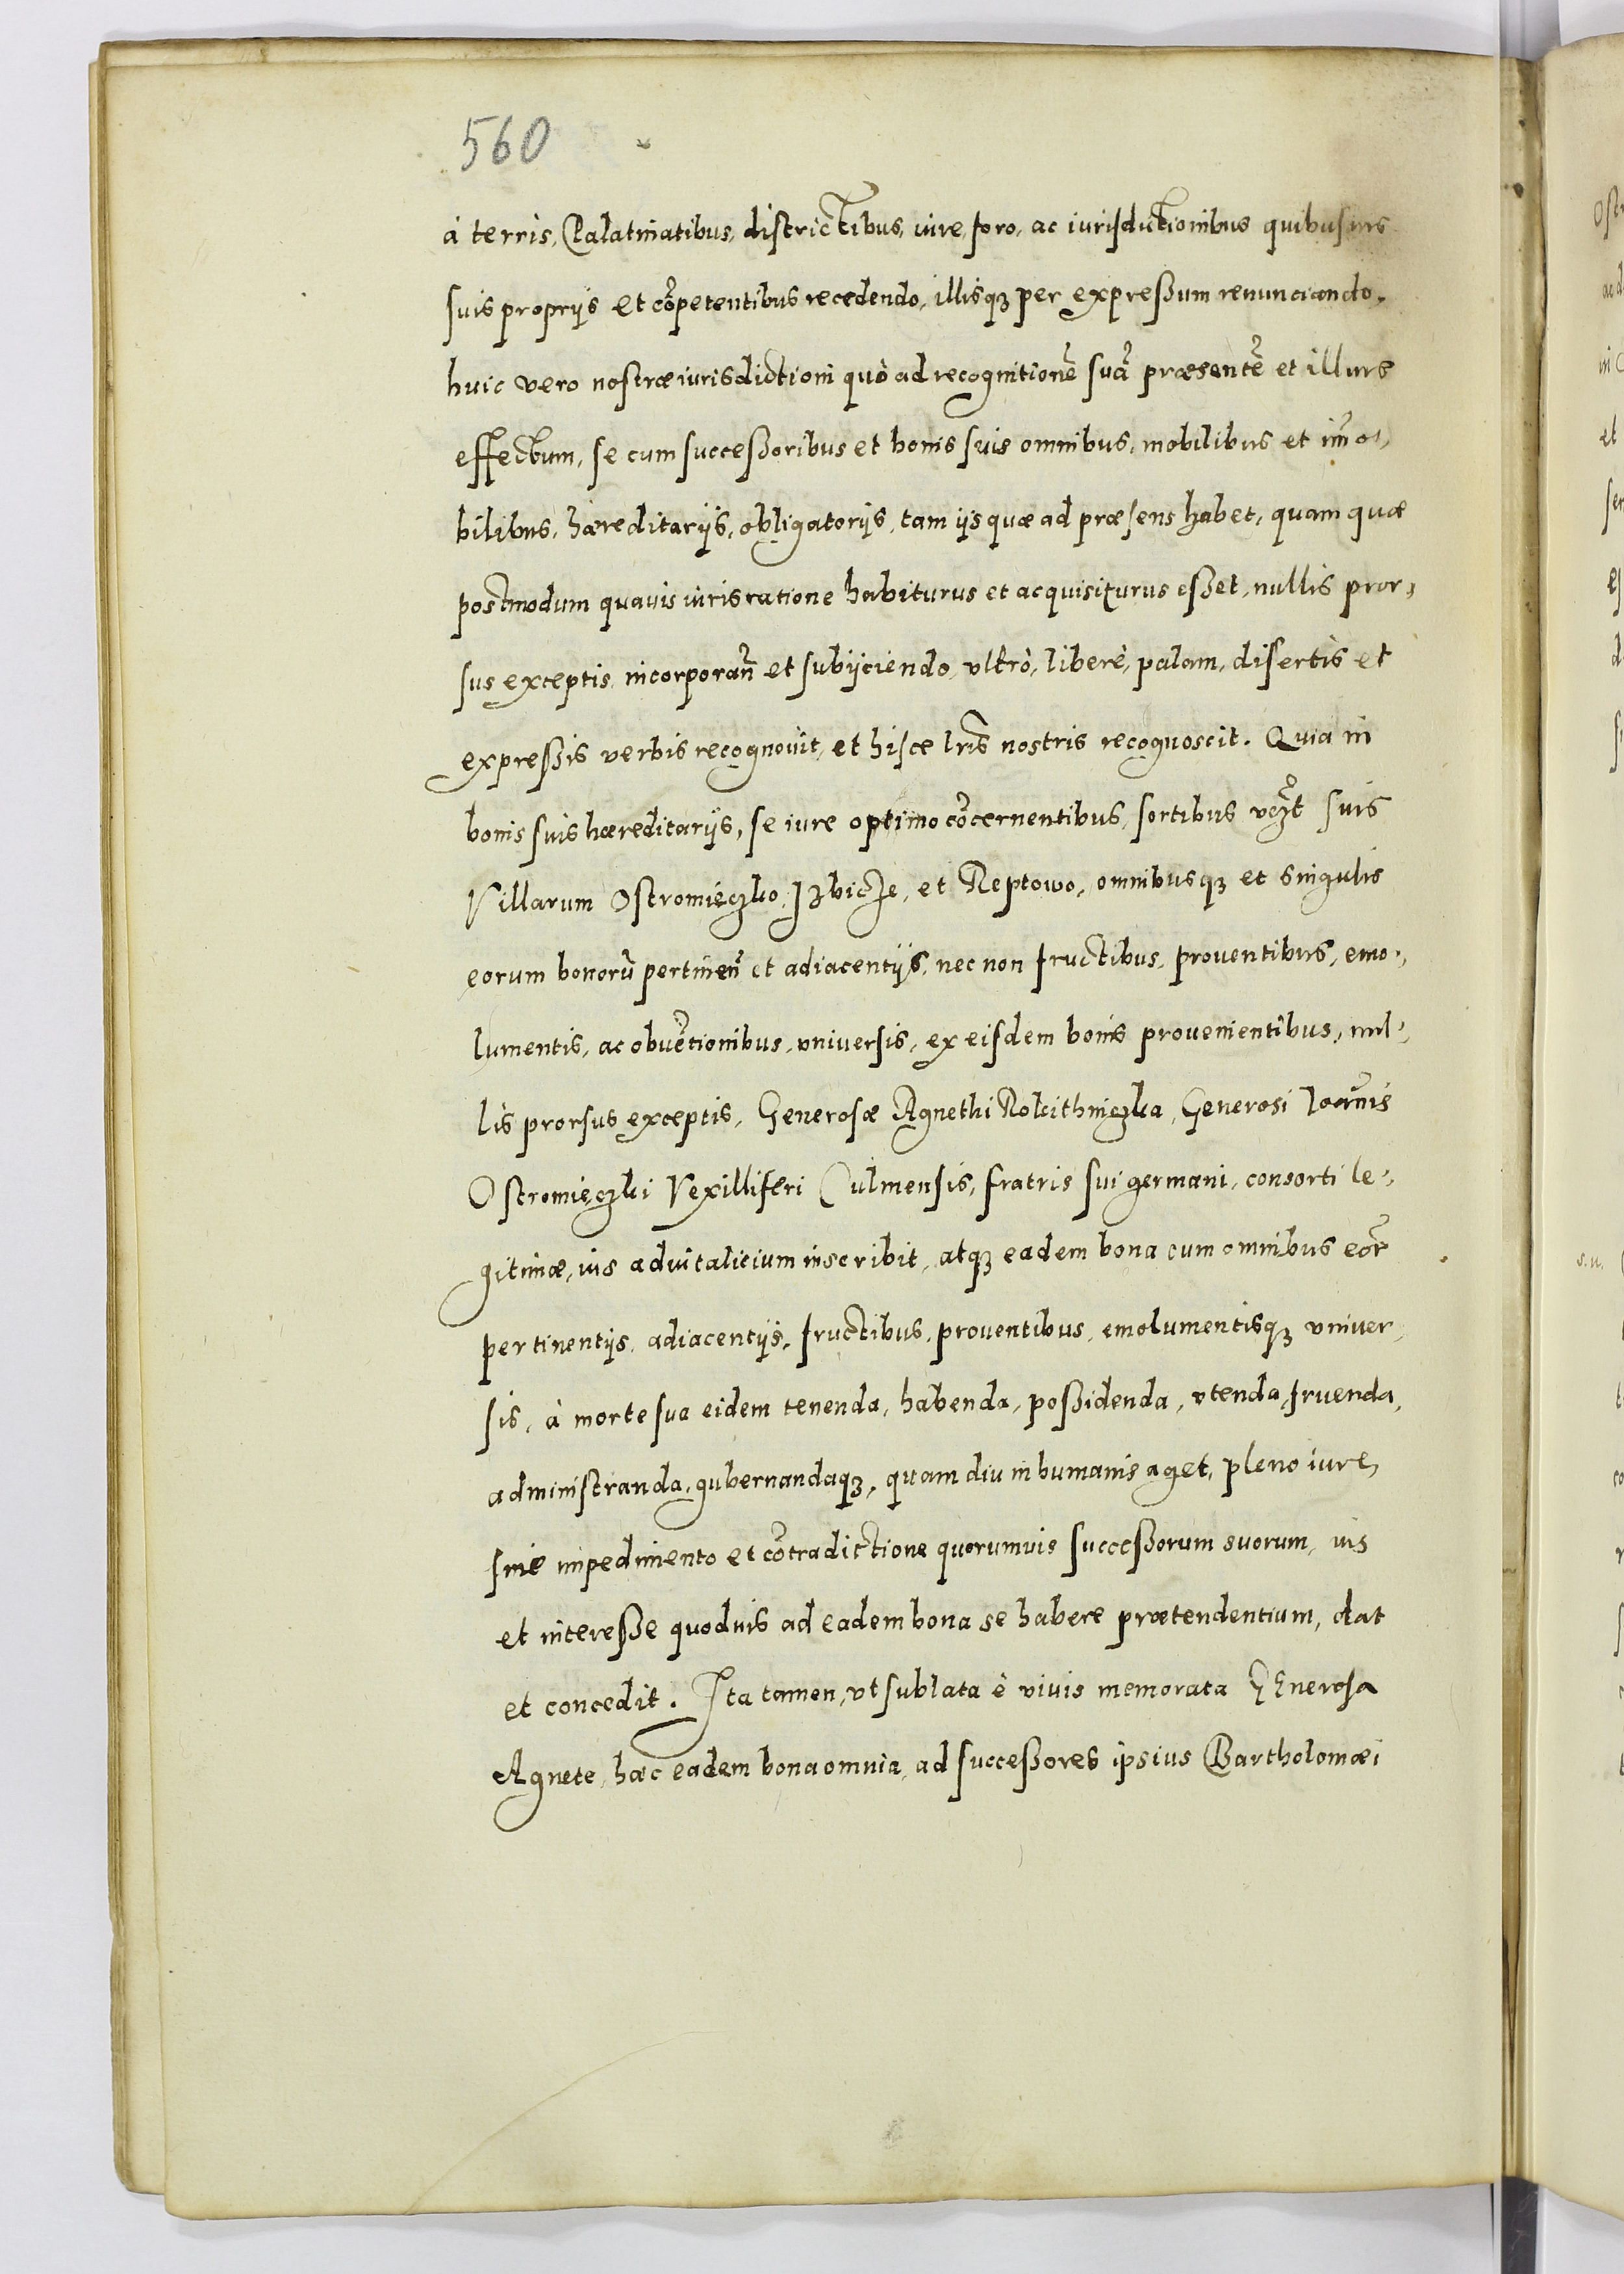 560
à terris, Palatinatibus, districtibus, iure, foro, ac iurisdictionibus quibusuis
suis proprijs et cõpetentibus recedendo, illisqꝫ per expreßum renunciando,
huic vero nostræ iurisdictioni quò ad recognitionẽ suã præsentẽ et illius
effectum, se cum succeßoribus et bonis suis omnibus, mobilibus et im̃o-
bilibus, hæreditarijs, obligatorijs, tam ijs quæ ad præsens habet, quam quæ
postmodum quauis iuris ratione habiturus et acquisiturus eßet, nullis pror-
sus exceptis, incorporañ et subijciendo, vltrò, liberè, palam, disertis et
expreßis verbis recognouit, et hisce lr̃is nostris recognoscit. Quia in
bonis suis hæreditarijs, se iure optimo cõcernentibus, sortibus vꝫt suis
Villarum Ostromieczko, Izbicze, et Neptowo, omnibusqꝫ et singulis
eorum bonorũ pertineñ et adiacentijs, nec non fructibus, prouentibus, emo-
lumentis, ac obuẽtionibus, vniuersis, ex eisdem bonis prouenientibus, nul-
lis prorsus exceptis, Generosæ Agnethi Rokithniczka, Generosi Ioañis
Ostromieczki Vexilliferi Culmensis, fratris sui germani, consorti le-
gitimæ, ius aduitalicium inscribit, atqꝫ eadem bona cum omnibus eor̃
pertinentijs, adiacentijs, fructibus, prouentibus, emolumentisqꝫ vniuer-
sis, à morte sua eidem tenenda, habenda, poßidenda, vtenda, fruenda,
administranda, gubernandaqꝫ, quam diu in humanis aget, pleno iure,
sine impedimento et cõtradictione quorumuis succeßorum suorum, ius
et intereße quoduis ad eadem bona se habere prætendentium, dat
et concedit. Ita tamen, vt sublata è viuis memorata Generosa
Agnete, hæc eadem bona omnia, ad succeßores ipsius Bartholomæi